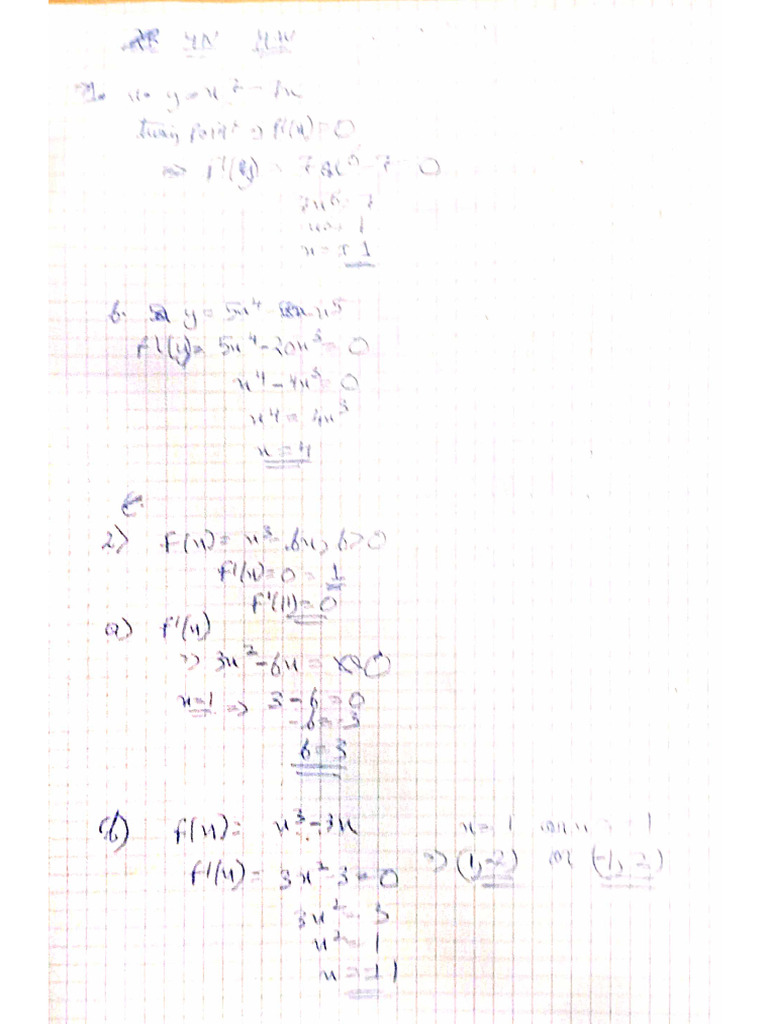 4N HW
1. y = x⁷ - 7x
turning point ⇒ f'(x) = 0
⇒ f'(y) = 7x⁶ - 7 = 0
7x⁶ = 7
1
x = ±1
b. y = 5x⁴ - x⁵
f'(y) = 5x⁴ - 20x³ = 0
x⁴ - 4x³ = 0
x⁴ = 4x³
x = 4
2) f(x) = x³ - bx, b > 0
f'(x) = 0 = 1
f'(1) = 0
a) f'(x)
⇒ 3x² - bx = 0
x = 1 ⇒ 3 - b = 0
-b = -3
b = 3
b) f(x) = x³ - 3x
f'(x) = 3x² - 3 = 0
3x² = 3
x² = 1
x = ±1
x = 1 or x = -1
⇒ (1, -2) or (-1, 2)